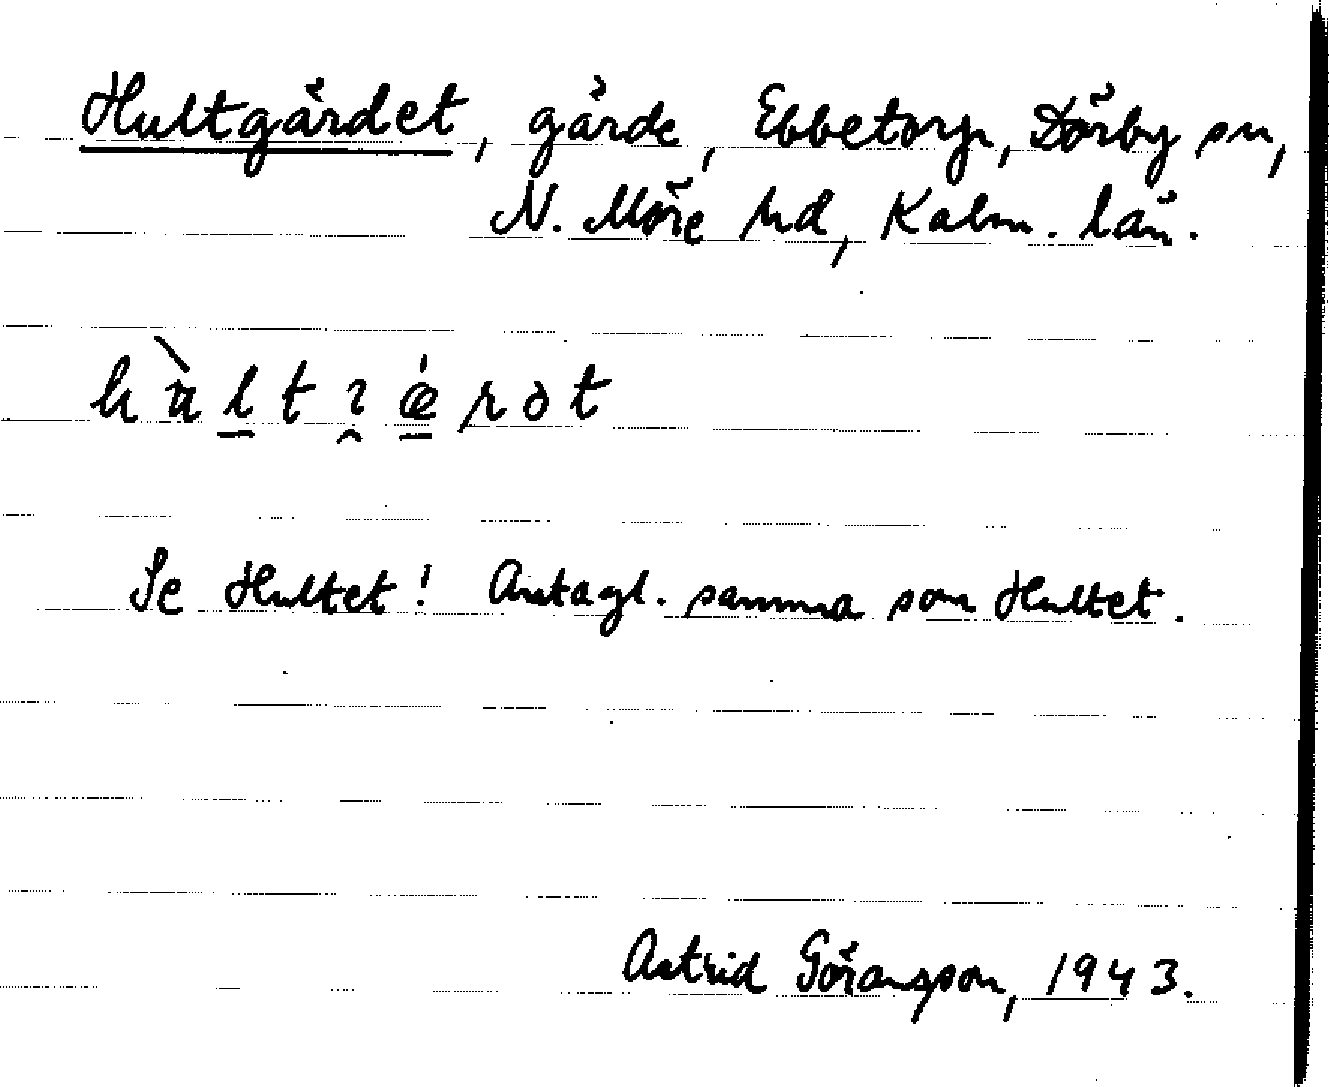 Hultgärdet, gärde, Ebbetorp, Dörby sn,
N. Möre hd, Kalm. län.
Se Hultet! Antagl. samma som Hultet.
Astrid Göransson, 1943.